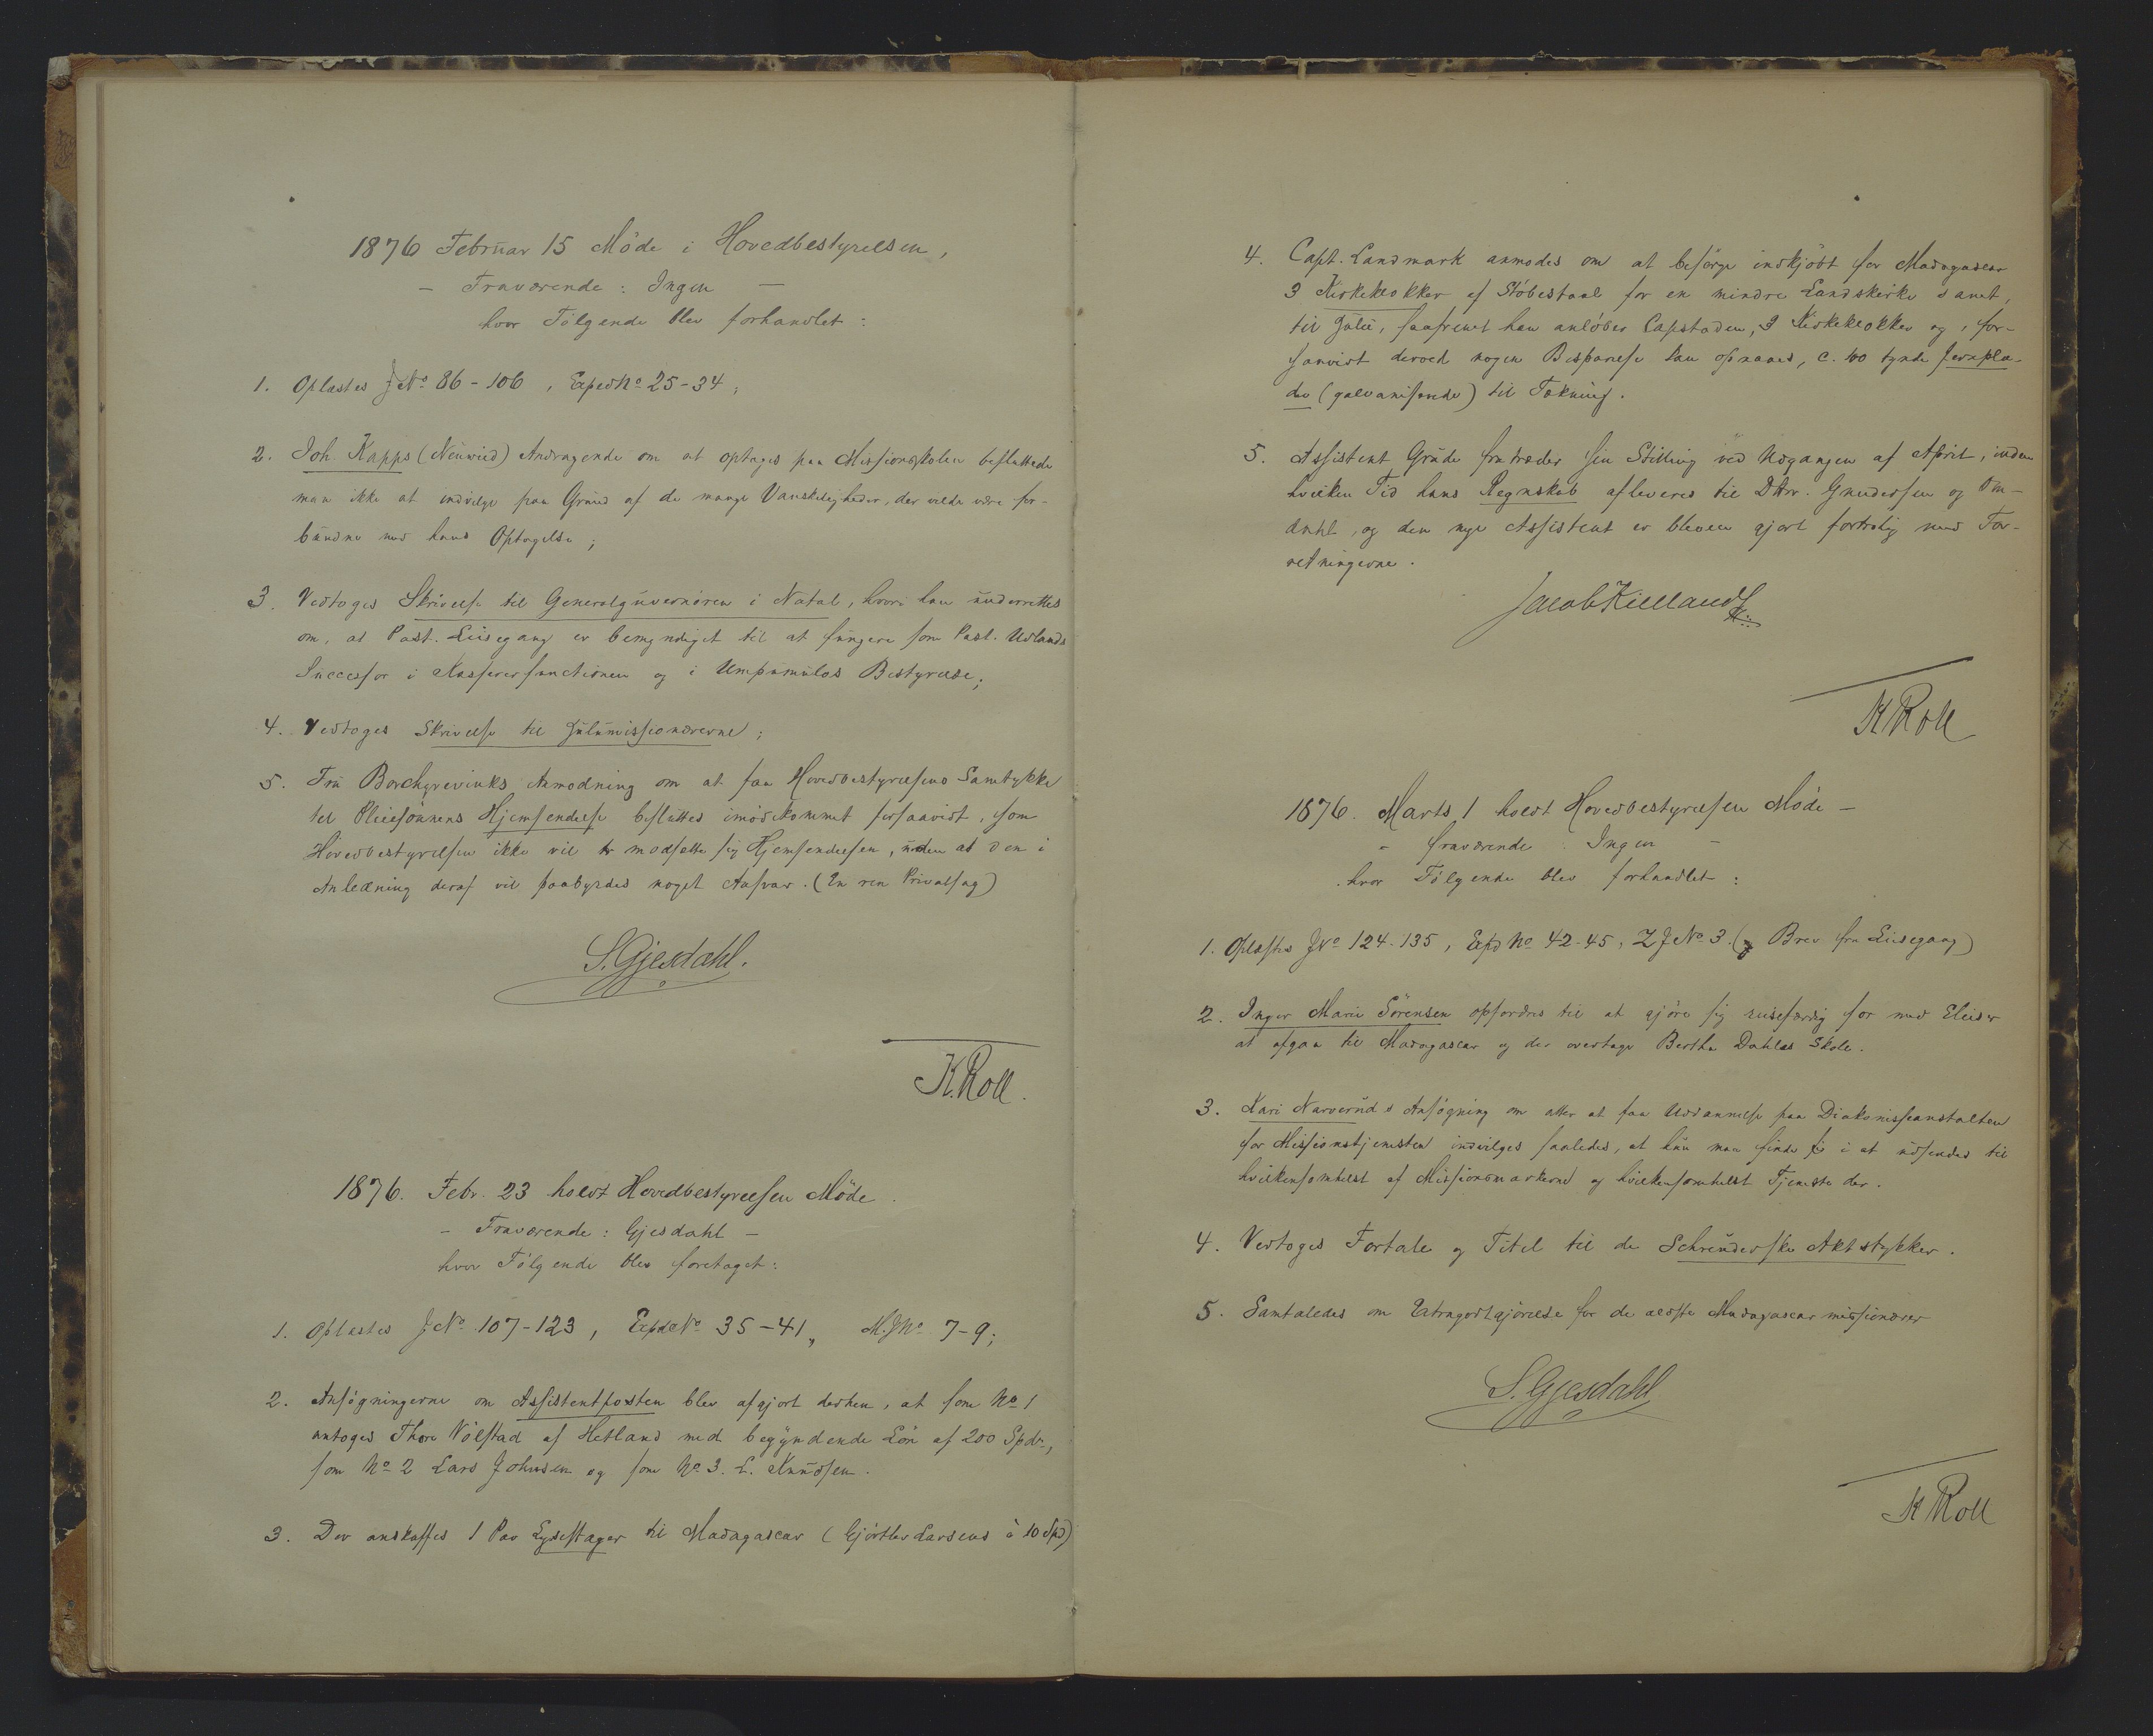 1876 Februar 15 Möde i Hovedbestyrelsen,
– Fraværende: Ingen –
hvor Fölgende blev forhandlet:
1. Oplæstes J№ 86-106, Exped№ 25-34;
2. Joh Kapps (Neuwied) Andragende om at optages paa Missionsskolen besluttede
man ikke at indvilge paa Grund af de mange Vanskeligheder, der vilde være for-
bundne med hans Optagelse;
3. Vedtoges Skrivelse til Generalguvernören i Natal, hvori han underrettes
om, at Past. Leisegang er bemyndiget til at fungere som Past. Udlands
Successor i Kassererfunctionen og i Umpumulos Bestyrelse;
4. Vedtoges Skrivelse til Zulumissionærerne;
5. Fru Borchgrevinks Anmodning om at faa Hovedbestyrelsens Samtykke
til Pleiesönnens Hjemsendelse besluttes imödekommet forsaavidt, som
Hovedbestyrelsen ikke vil modsætte sig Hjemsendelsen, uden at den i
Anledning deraf vil paabyrdes noget Ansvar. (En ren Privatsag)
S. Gjesdahl.
K. Roll.
1876. Febr. 23 holdt Hovedbestyrelsen Möde.
– Fraværende: Gjesdahl –
hvor Fölgende blev foretaget:
1. Oplæstes J№ 107-123, Exped№ 35-41, M.J№ 7-9;
2. Ansögningerne om Assistentposten blev afgjort derhen, at som No 1
antoges Thore Völstad af Hetland med begyndende Lön af 200 Spdr,
som No 2 Lars Johnsen og som No 3. L. Knudsen.
3. Der anskaffes 1 Par Lysestager til Madagascar (Gjörtler Larsens à 10 Spd)
4. Capt. Landmark anmodes om at besörge indkjöbt for Madagascar
3 Kirkeklokker af Stöbestaal for en mindre Landskirke dannet,
til Zulu, saafremt han anlöber Capstaden, 3 Kirkeklokker og, for-
saavidt derved nogen Besparelse kan opnaaes, c. 100 tynde Jernpla-
der (galvaniserede) til Tækning.
5. Assistent Grude fratræder sin Stilling ved Udgangen af April, inden
hvilken Tid hans Regnskab afleveres til DHrr. Gundersen og Om-
dahl, og den nye Assistent er bleven gjort fortrolig med For-
retningerne.
Jacob Kielland
K Roll
1876. Marts 1 holdt Hovedbestyrelsen Möde –
– fraværende: Ingen –
hvor Fölgende blev forhandlet:
1. Oplæstes J№ 124-135, Expd No 42-45, Z J№ 3. (Brev fra Leisegang)
2. Inger Marie Sörensen opfordres til at gjöre sig reisefærdig for med Elieser
at afgaa til Madagascar og der overtage Berthe Dahles Skole.
3. Kari Narverud's Ansögning om atter at faa Uddannelse paa Diakonisseanstalten
for Missionstjenesten indvilges saaledes, at hun maa finde sig i at udsendes til
hvilkensomhelst af Missionsmarkerne og hvilkensomhelst Tjeneste der.
4. Vedtoges Fortale og Titel til de Schreuderske Aktstykker.
5. Samtaledes om Extragodtgjörelse for de ældste Madagascarmissionærer
S. Gjesdahl
K Roll